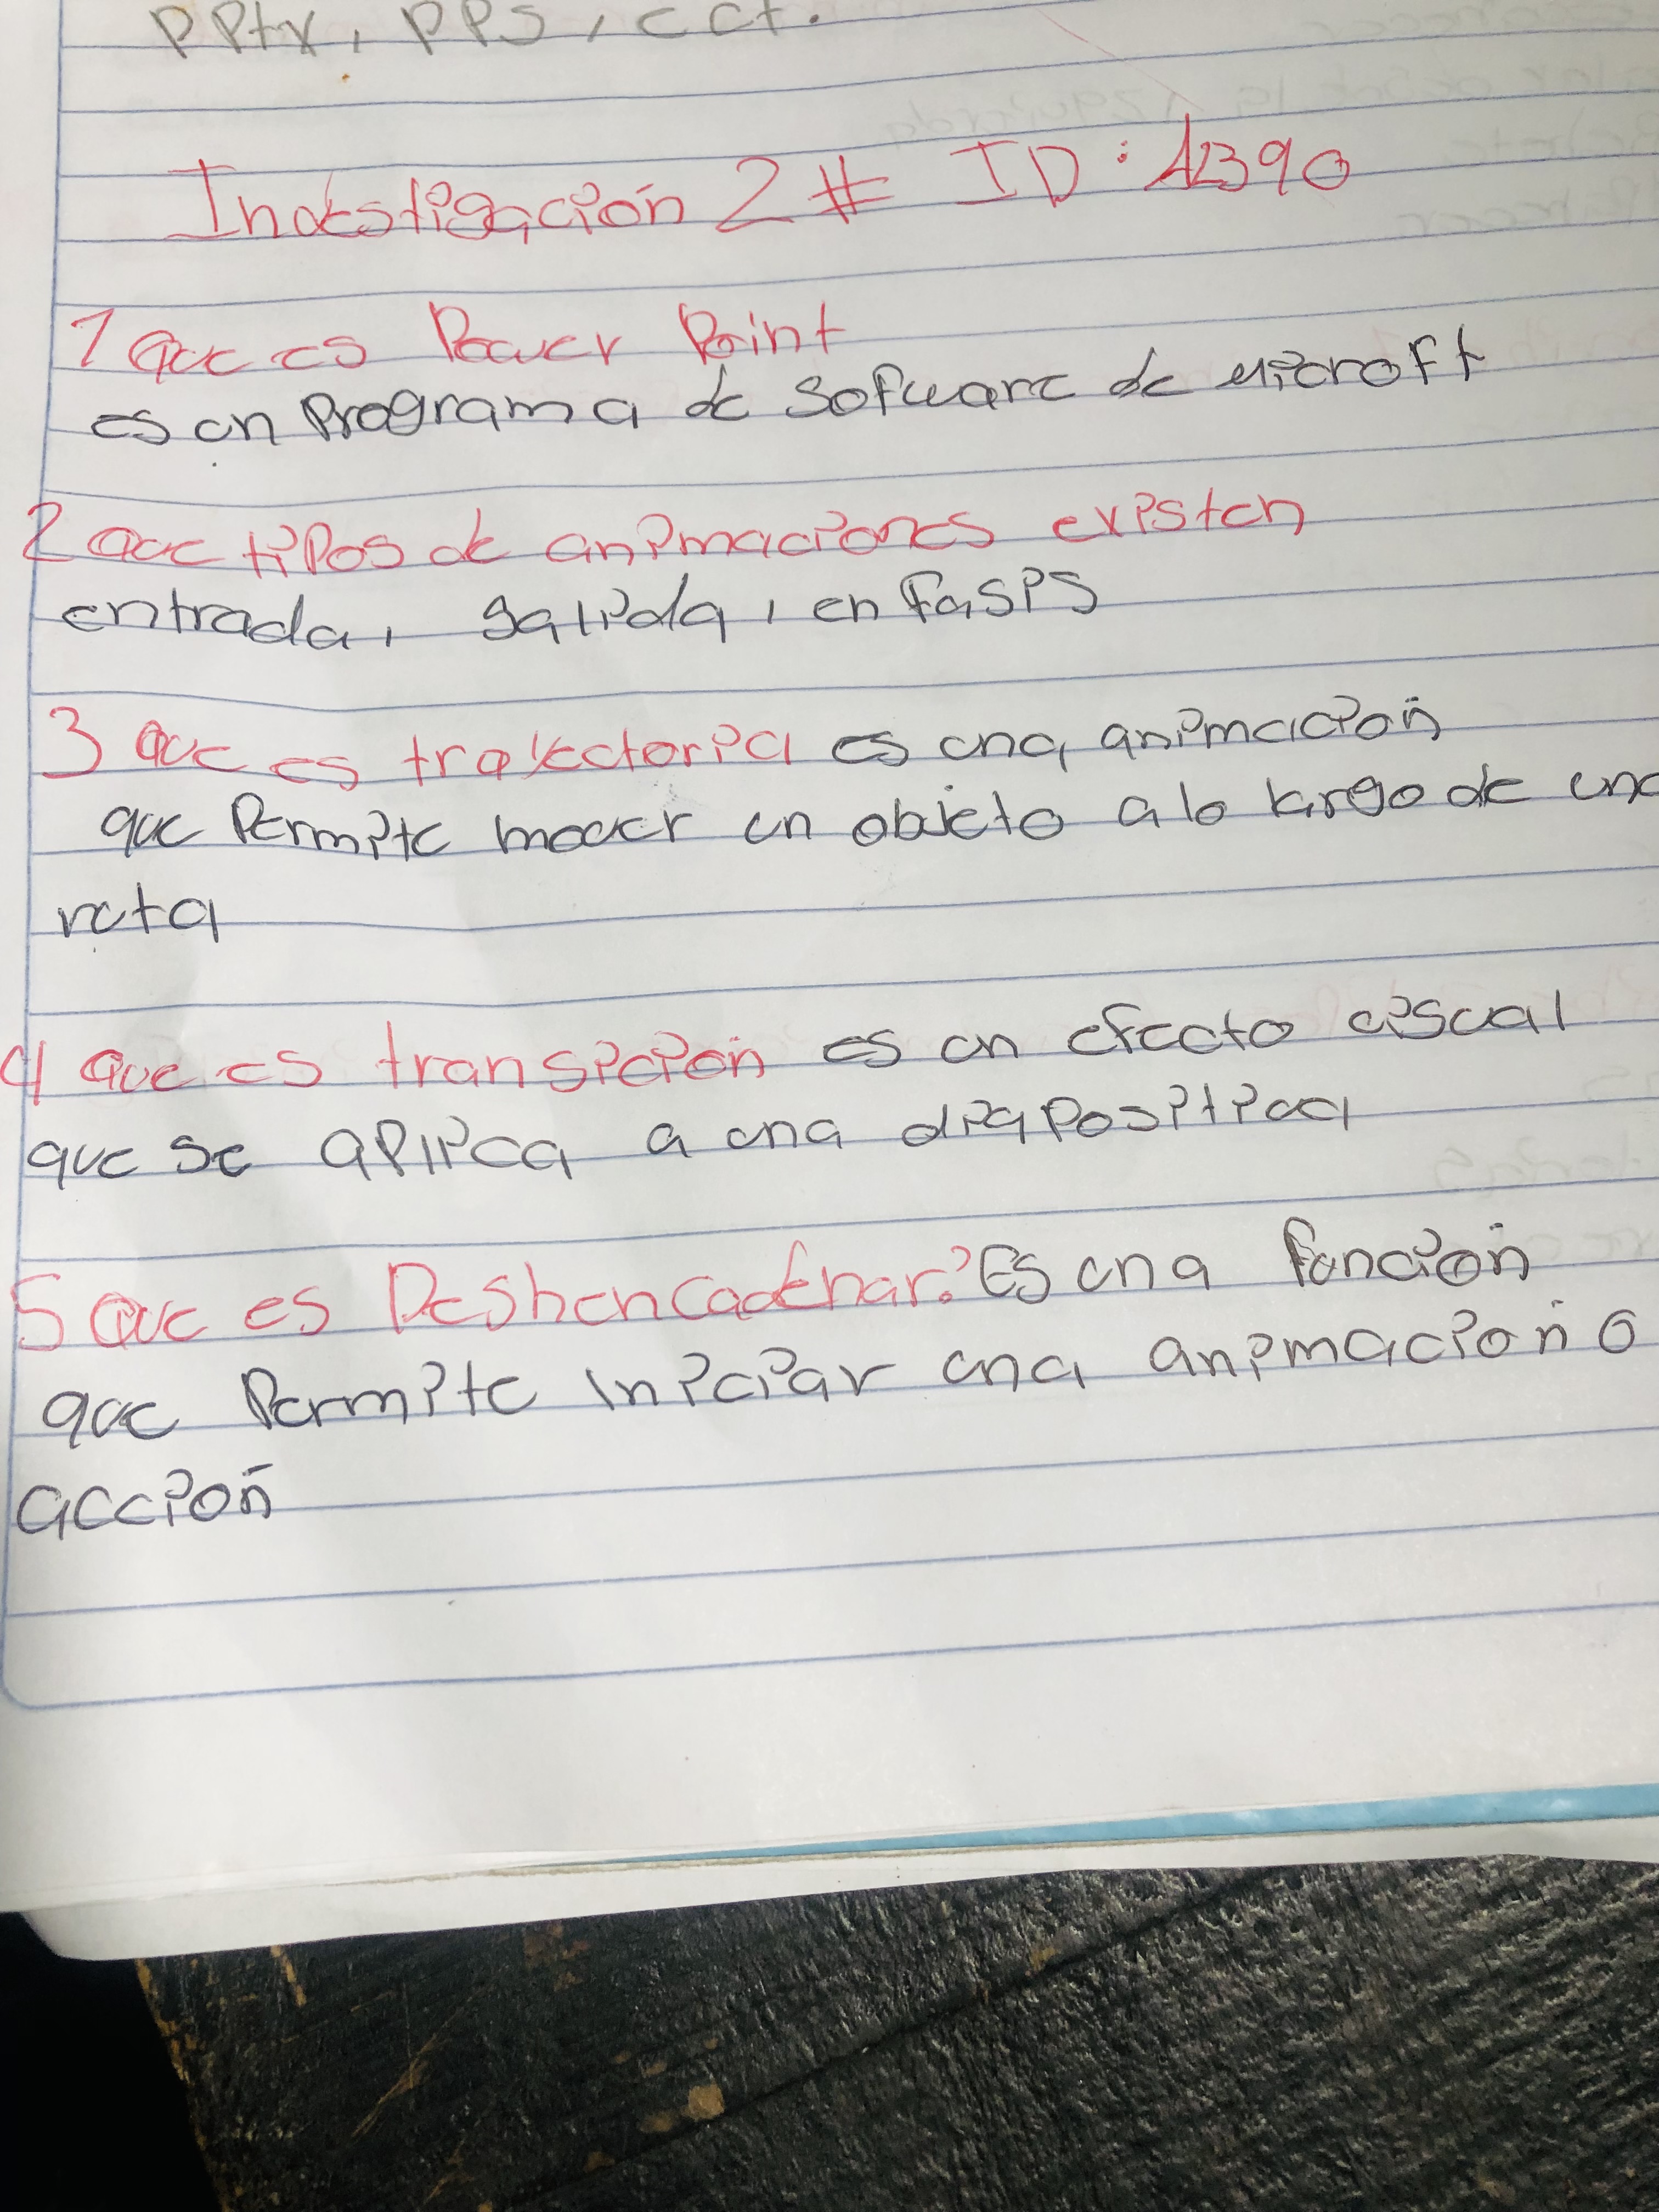 PPtx, PPS, ect.
Investigación 2 # ID: 12390
1 Que es Power Point
es un Programa de Sofware de Microft
2 que tipos de animaciones existen
entrada, salida, en fasis
3 Que es trayectoria es una animación
que Permite mover un objeto a lo largo de una
ruta
4 Que es transición es un efecto visual
que se aplica a una diapositiva
5 Que es Deshencadenar? Es una función
que Permite iniciar una animación o
acción